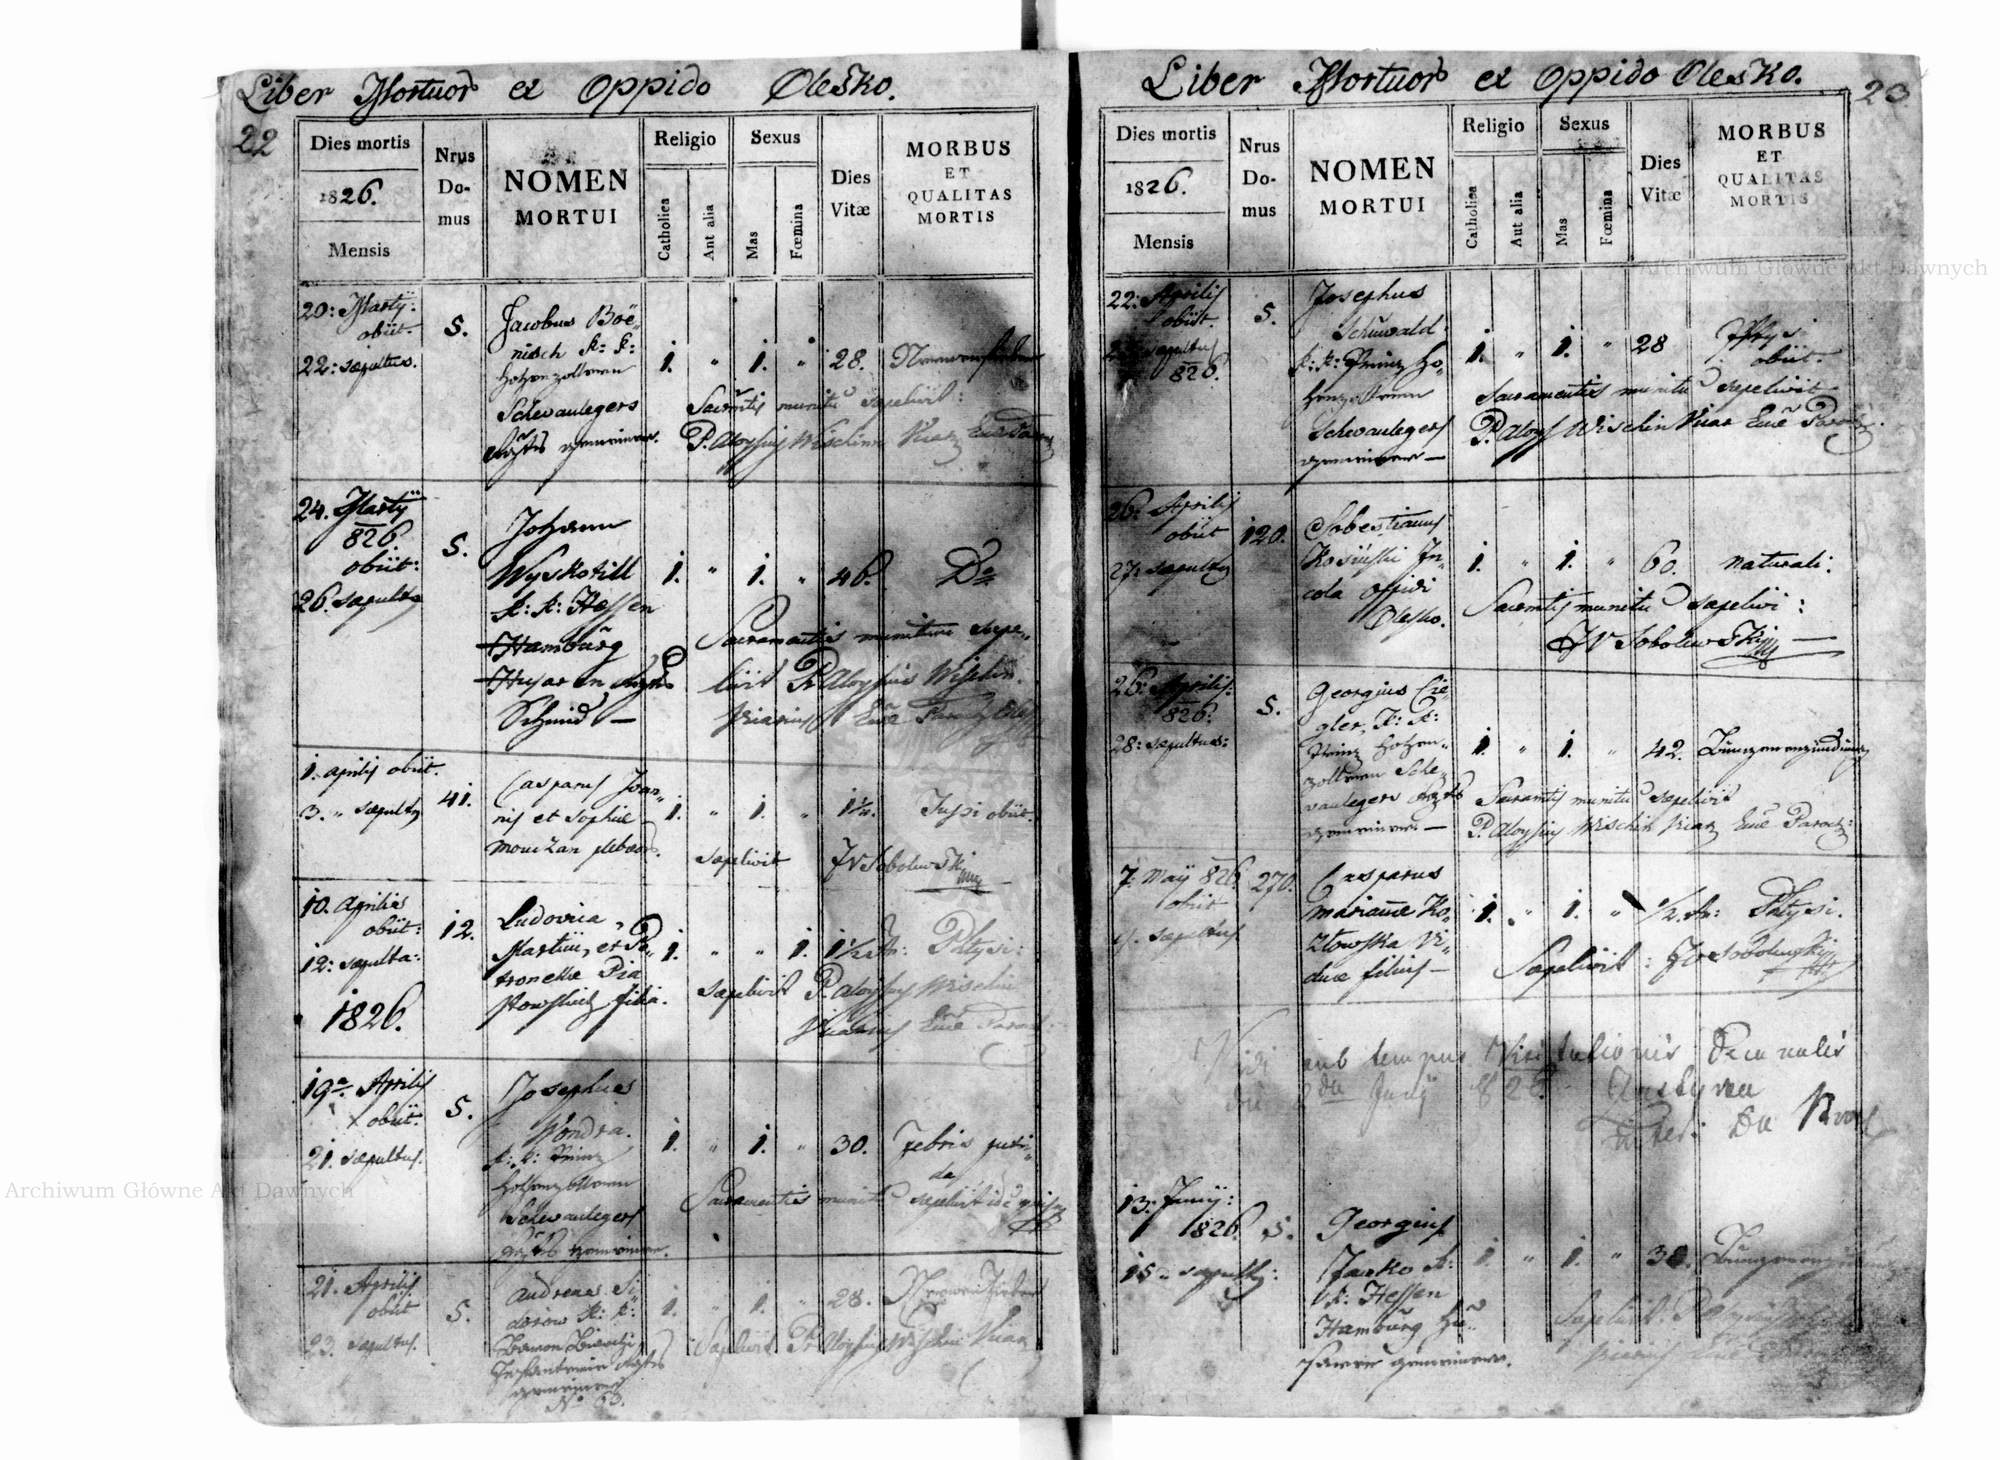 Liber Mortuor ex Oppido Olesko.
22
Dies mortis
1826.
Mensis
Nrus Do- mus
NOMEN MORTUI
Religio
Catholica
Aut alia
Sexus
Mas
Fœmina
Dies Vitæ
MORBUS ET QUALITAS MORTIS
20: Martÿ:
obiit.
22: sepultus.
5.
Jacobus Boë-
nisch k: k:
Hohenzollern
Schevaulegers
Rgts gemeiner.
1. " 1. " 28. Nervenfieber
Sacrmtis munitu sepelivit:
P. Aloysius Wischin Vicar Eiue Paroch
24. Martÿ
826
obiit:
26. sepultus
5.
Johann
Wyskotill
k: k: Hessen
Hamburg
Husaren Rgts
Schmid —
1. " 1. " 46. Do
Sacramentis munitum sepe-
livit P. Aloysius Wischin
Vicarius
1. Aprilis obiit.
3. " sepultus
41.
Casparus Joan-
nis et Sophie
Mouczan plebeor.
1. " 1. " Tussi obiit.
sepelivit JV Sobolewski
10. Aprilis
obiit:
12: sepulta:
1826.
12.
Ludovica,
Martini, et Pe-
tronelle Pia
filia.
1. " " 1. 1 1/2 Ar: Phtysi:
sepelivit P. Aloysius Wischin
Vicarius
19a Aprilis
obiit.
21. sepultus.
5.
Josephus
Wondra.
k: k: Prinz
Hohenzollern
Schevaulegers
Rgts gemeiner.
1. " 1. " 30. Febris putri-
da
Sacramentis munitu sepelivit
21. Aprilis
obiit
23. sepultus.
5.
Andreas Si-
dorow k: k:
Baron
Infanterie Rgts
gemeiner
No 53.
1. " 1. " 28. Nervenfieber
Sepelivit P. Aloysius Wischin Vicar
Liber Mortuor ex Oppido Olesko.
23
Dies mortis
1826.
Mensis
Nrus Do- mus
NOMEN MORTUI
Religio
Catholica
Aut alia
Sexus
Mas
Fœmina
Dies Vitæ
MORBUS ET QUALITAS MORTIS
22: Aprilis
obiit.
sepultus
826.
5.
Josephus
Schuwald
k: k: Prinz Ho-
henzollern
Schevaulegers
gemeiner —
1. " 1. " 28 Phtysi
obiit.
Sacramentis munitu sepelivit
P. Aloys Wischin Vicar Eiue Paroch.
26. Aprilis
obiit
27: sepultus
120.
Sebestianus
Kosinski In-
cola oppidi
Olesko.
1. " 1. " 60. naturali.
Sacrmtis munitu sepelivi:
JV Sobolewski
26: Aprilis.
826:
28: sepultus:
5.
Georgius Cie-
gler, k: k:
Prinz Hohen-
zollern Sche-
vaulegers Rgts
gemeiner. —
1. " 1. " 42. Lungenenzündung
Sacrmtis munitu sepelivit
P. Aloysius Wischin Vicar Eiue Paroch:
7. May 826.
obiit
9. sepultus
270.
Casparus
Marianne Ko-
złowska Vi-
due filius —
1. " 1. " 1/2. Ar: Phtysi.
Sepelivit: JV Sobolewski
Vidi sub tempus Visitationis Decanalis
die 2da Junÿ 826.
13: Junÿ:
1826.
15 " sepultus:
5.
Georgius
Jarko k:
k: Hessen
Hamburg Hu-
saren gemeiner.
1. " 1. " 30. Lungenenzündung
Sepelivit P. Aloysius
Vicarius
Archiwum Główne Akt Dawnych
Archiwum Główne Akt Dawnych